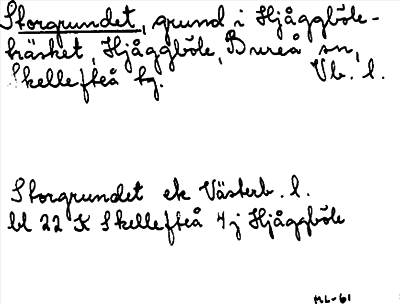 Storgrundet, grund i Hjåggböle-
träsket, Hjåggböle, Bureå sn,
Skellefteå tg. Vb. l.
Storgrundet ek Västerb. l.
bl 22 K Skellefteå 4j Hjåggböle
ML-61